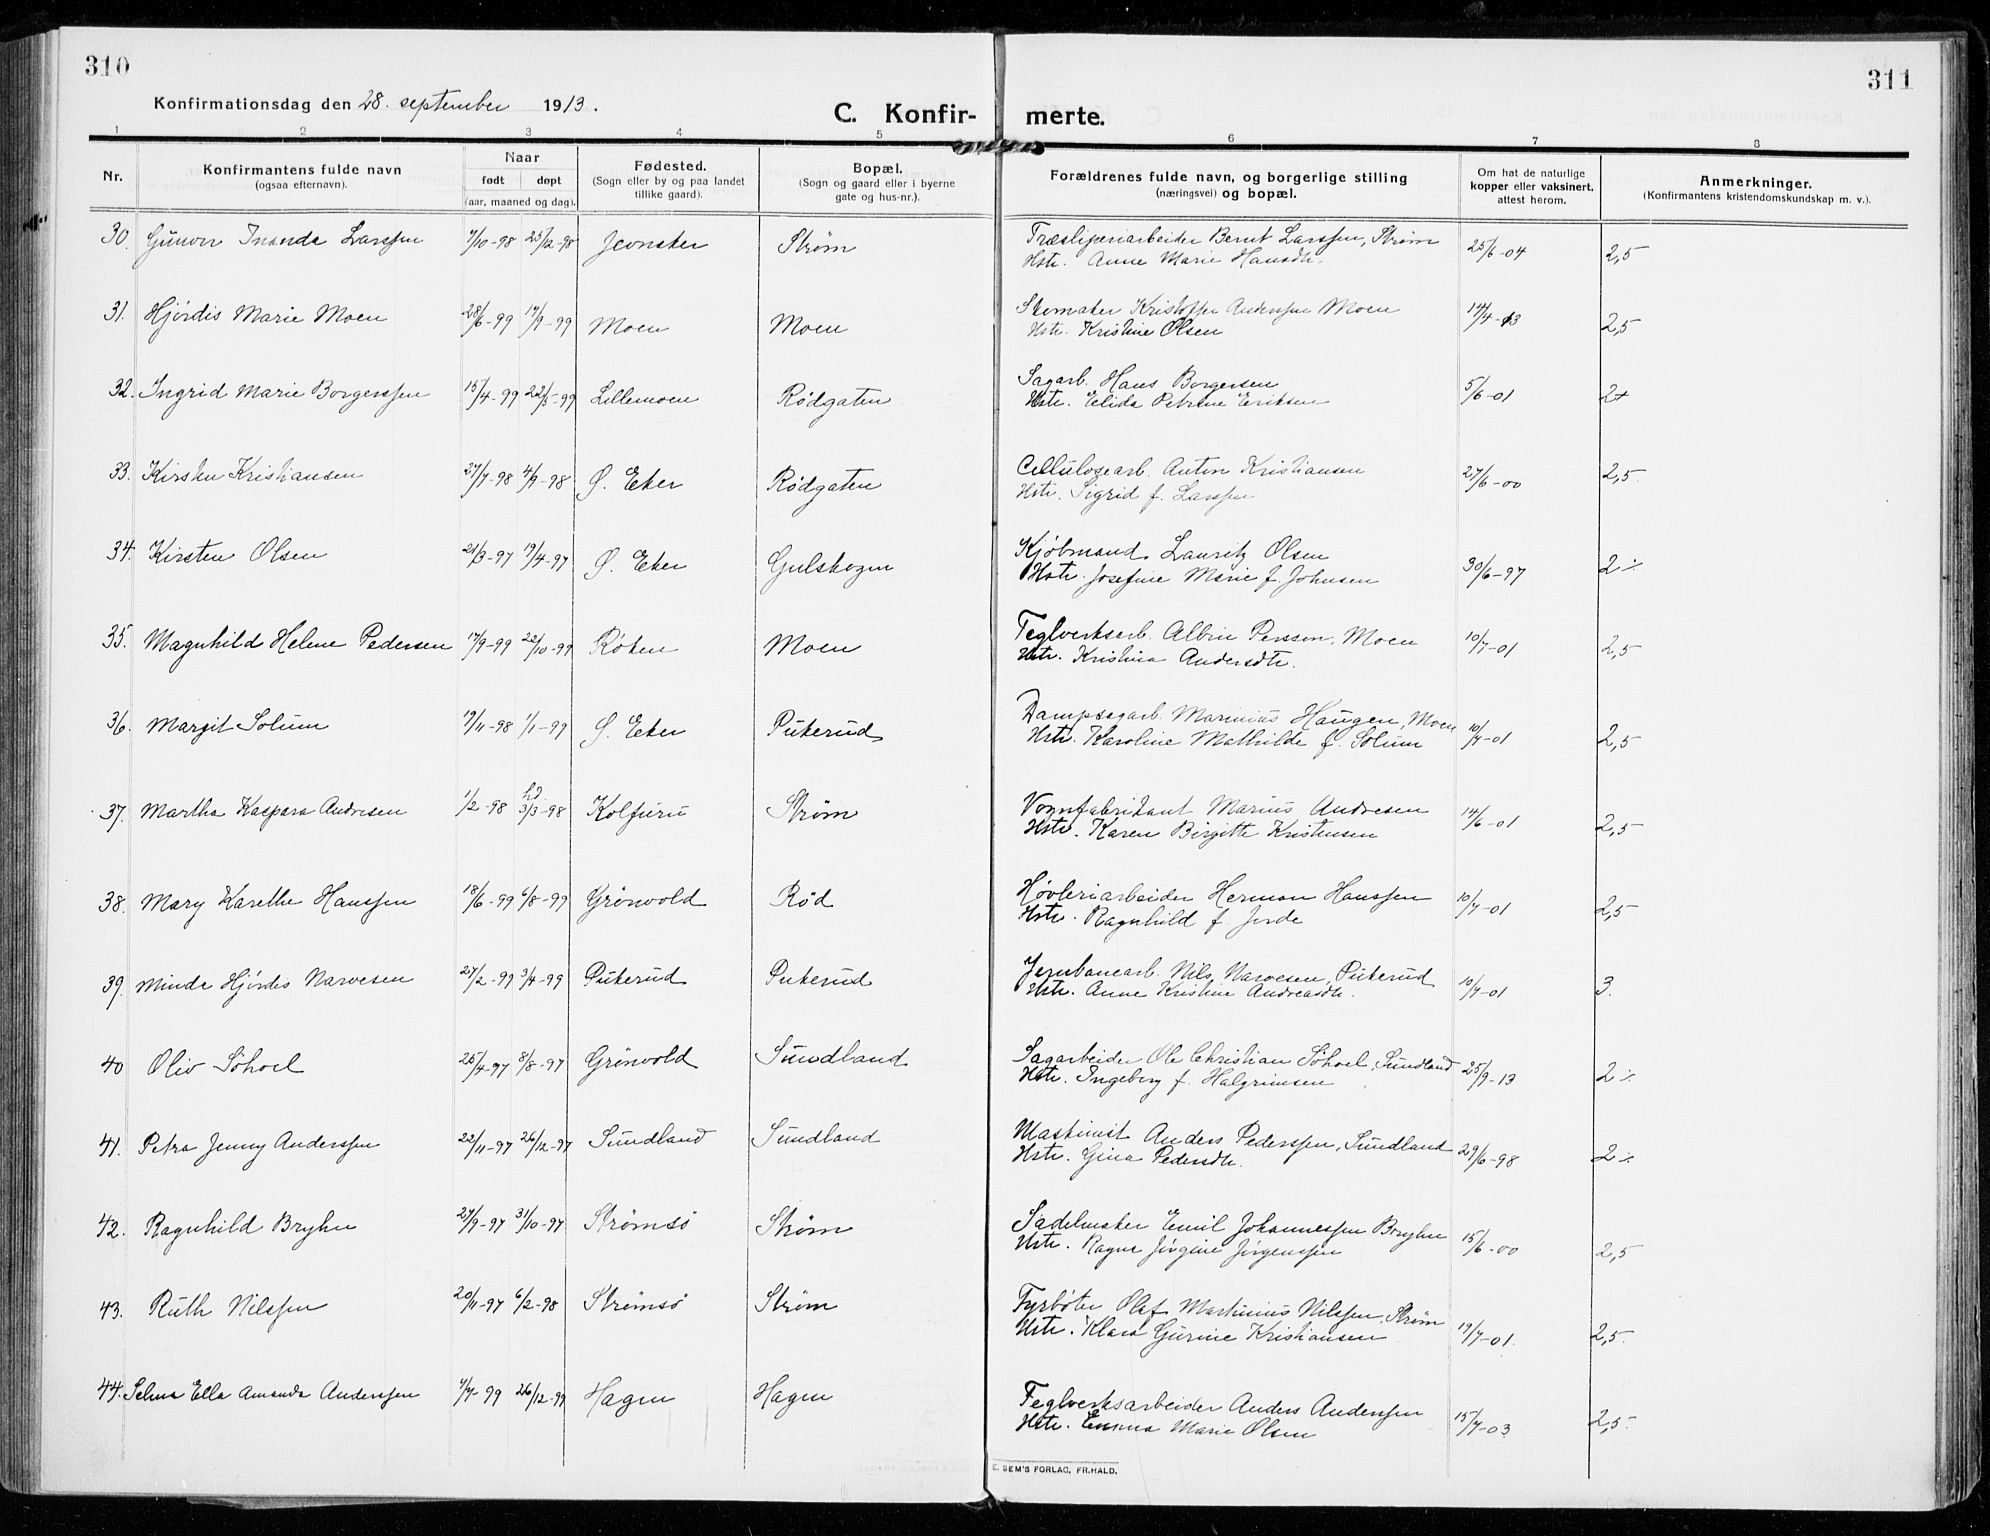 310
311
Konfirmationsdag den 28. september 1913.
C. Konfir- merte.
1 2 3 4 5 6 7 8
Nr. Konfirmantens fulde navn (ogsaa efternavn). Naar født døpt (aar, maaned og dag). Fødested. (Sogn eller by og paa landet tillike gaard). Bopæl. (Sogn og gaard eller i byerne gate og hus-nr.). Forældrenes fulde navn, og borgerlige stilling (næringsvei) og bopæl. Om hat de naturlige kopper eller vaksinert, attest herom. Anmerkninger. (Konfirmantens kristendomskundskap m. v.).
30. Gunvor Larssen /10-98 25/12-98 Strøm Træsliperiarbeider Bernt Larssen, Strøm 25/6-04 2,5
Hstr. Anne Marie Hansdtr.
31. Hjørdis Marie Moen 28/6-99 17/9-99 Moen Moen Skomaker Kristoffer Anderssen Moen 14/4-13 2,5
Hstr. Kristine Olsen
32. Ingrid Marie Borgerssen 15/4-99 22/5-99 Lillemoen Rødgaten Sagarb. Hans Borgersen 5/6-01 2+
Hstr. Elida Petrine Eriksen
33. Kirsten Kristiansen 27/7-98 4/9-98 Ø. Eker Rødgaten Cellulosearb. Anton Kristiansen 27/6-00 2,5
Hstr. Sigrid f. Larssen
34. Kirsten Olsen 21/3-97 19/4-97 Ø. Eker Gulskogen Kjøbmand Lauritz Olsen 30/6-97 2 ⁒
Hstr. Josefine Marie f. Johnsen
35. Magnhild Helene Pedersen 17/9-99 22/10-99 Røken Moen Teglverksarb. Albin Persson, Moen 10/7-01 2,5
Hstr. Kristina Andersdtr.
36. Margit Solum 19/11-98 1/1-99 Ø. Eker Pukerud Dampsagarb. Marinius Haugen, Moen 10/7-01 2,5
Hstr. Karoline Mathilde f. Solum
37. Martha Kaspara Andresen 1/2-98 hd 3/3-98 Kolfuru Strøm Vognfabrikant Marius Andresen 14/6-01 2,5
Hstr. Karen Birgitte Kristensen
38. Mary Karethe Hanssen 18/6-99 6/8-99 Grønvold Rød Høvleriarbeider Herman Hanssen 10/7-01 2,5
Hstr. Ragnhild f. Jorde
39. Minda Hjørdis Narvesen 27/2-99 3/4-99 Pukerud Pukerud Jernbanearb. Nils Narvesen, Pukerud 10/7-01 3.
Hstr. Anne Kristine Andreasdtr.
40 Oliv Söhoel 25/4-97 8/8-97 Grönvold Sundland Sagarbeider Ole Christian Söhoel, Sundland 25/9-13 2 ⁒
Hstr. Ingeborg f. Halgrimsen
41. Petra Jenny Anderssen 22/11-97 26/12-97 Sundland Sundland Maskinist Anders Pederssen, Sundland 29/6-98 2 ⁒
Hstr. Gina Pedersdtr.
42. Ragnhild Bryhn 27/9-97 31/10-97 Strømsö Strøm Sadelmaker Emil Johannessen Bryhn 15/6-00 2,5
Hstr. Ragna Jörgine Jörgenssen
43. Ruth Nilssen 20/11-97 6/2-98 Strømsö Strøm Fyrbøter Olaf Martinius Nilssen, Strøm 19/7-01. 2,5
Hstr. Klara Gurine Kristiansen
44. Selma Ella Amanda Anderssen /7-99 26/12-99 Hagen Hagen Teglverksarbeider Anders Anderssen 15/7-03 2,5
Hstr. Emma Marie Olsen
E. SEM'S FORLAG, FR.HALD.